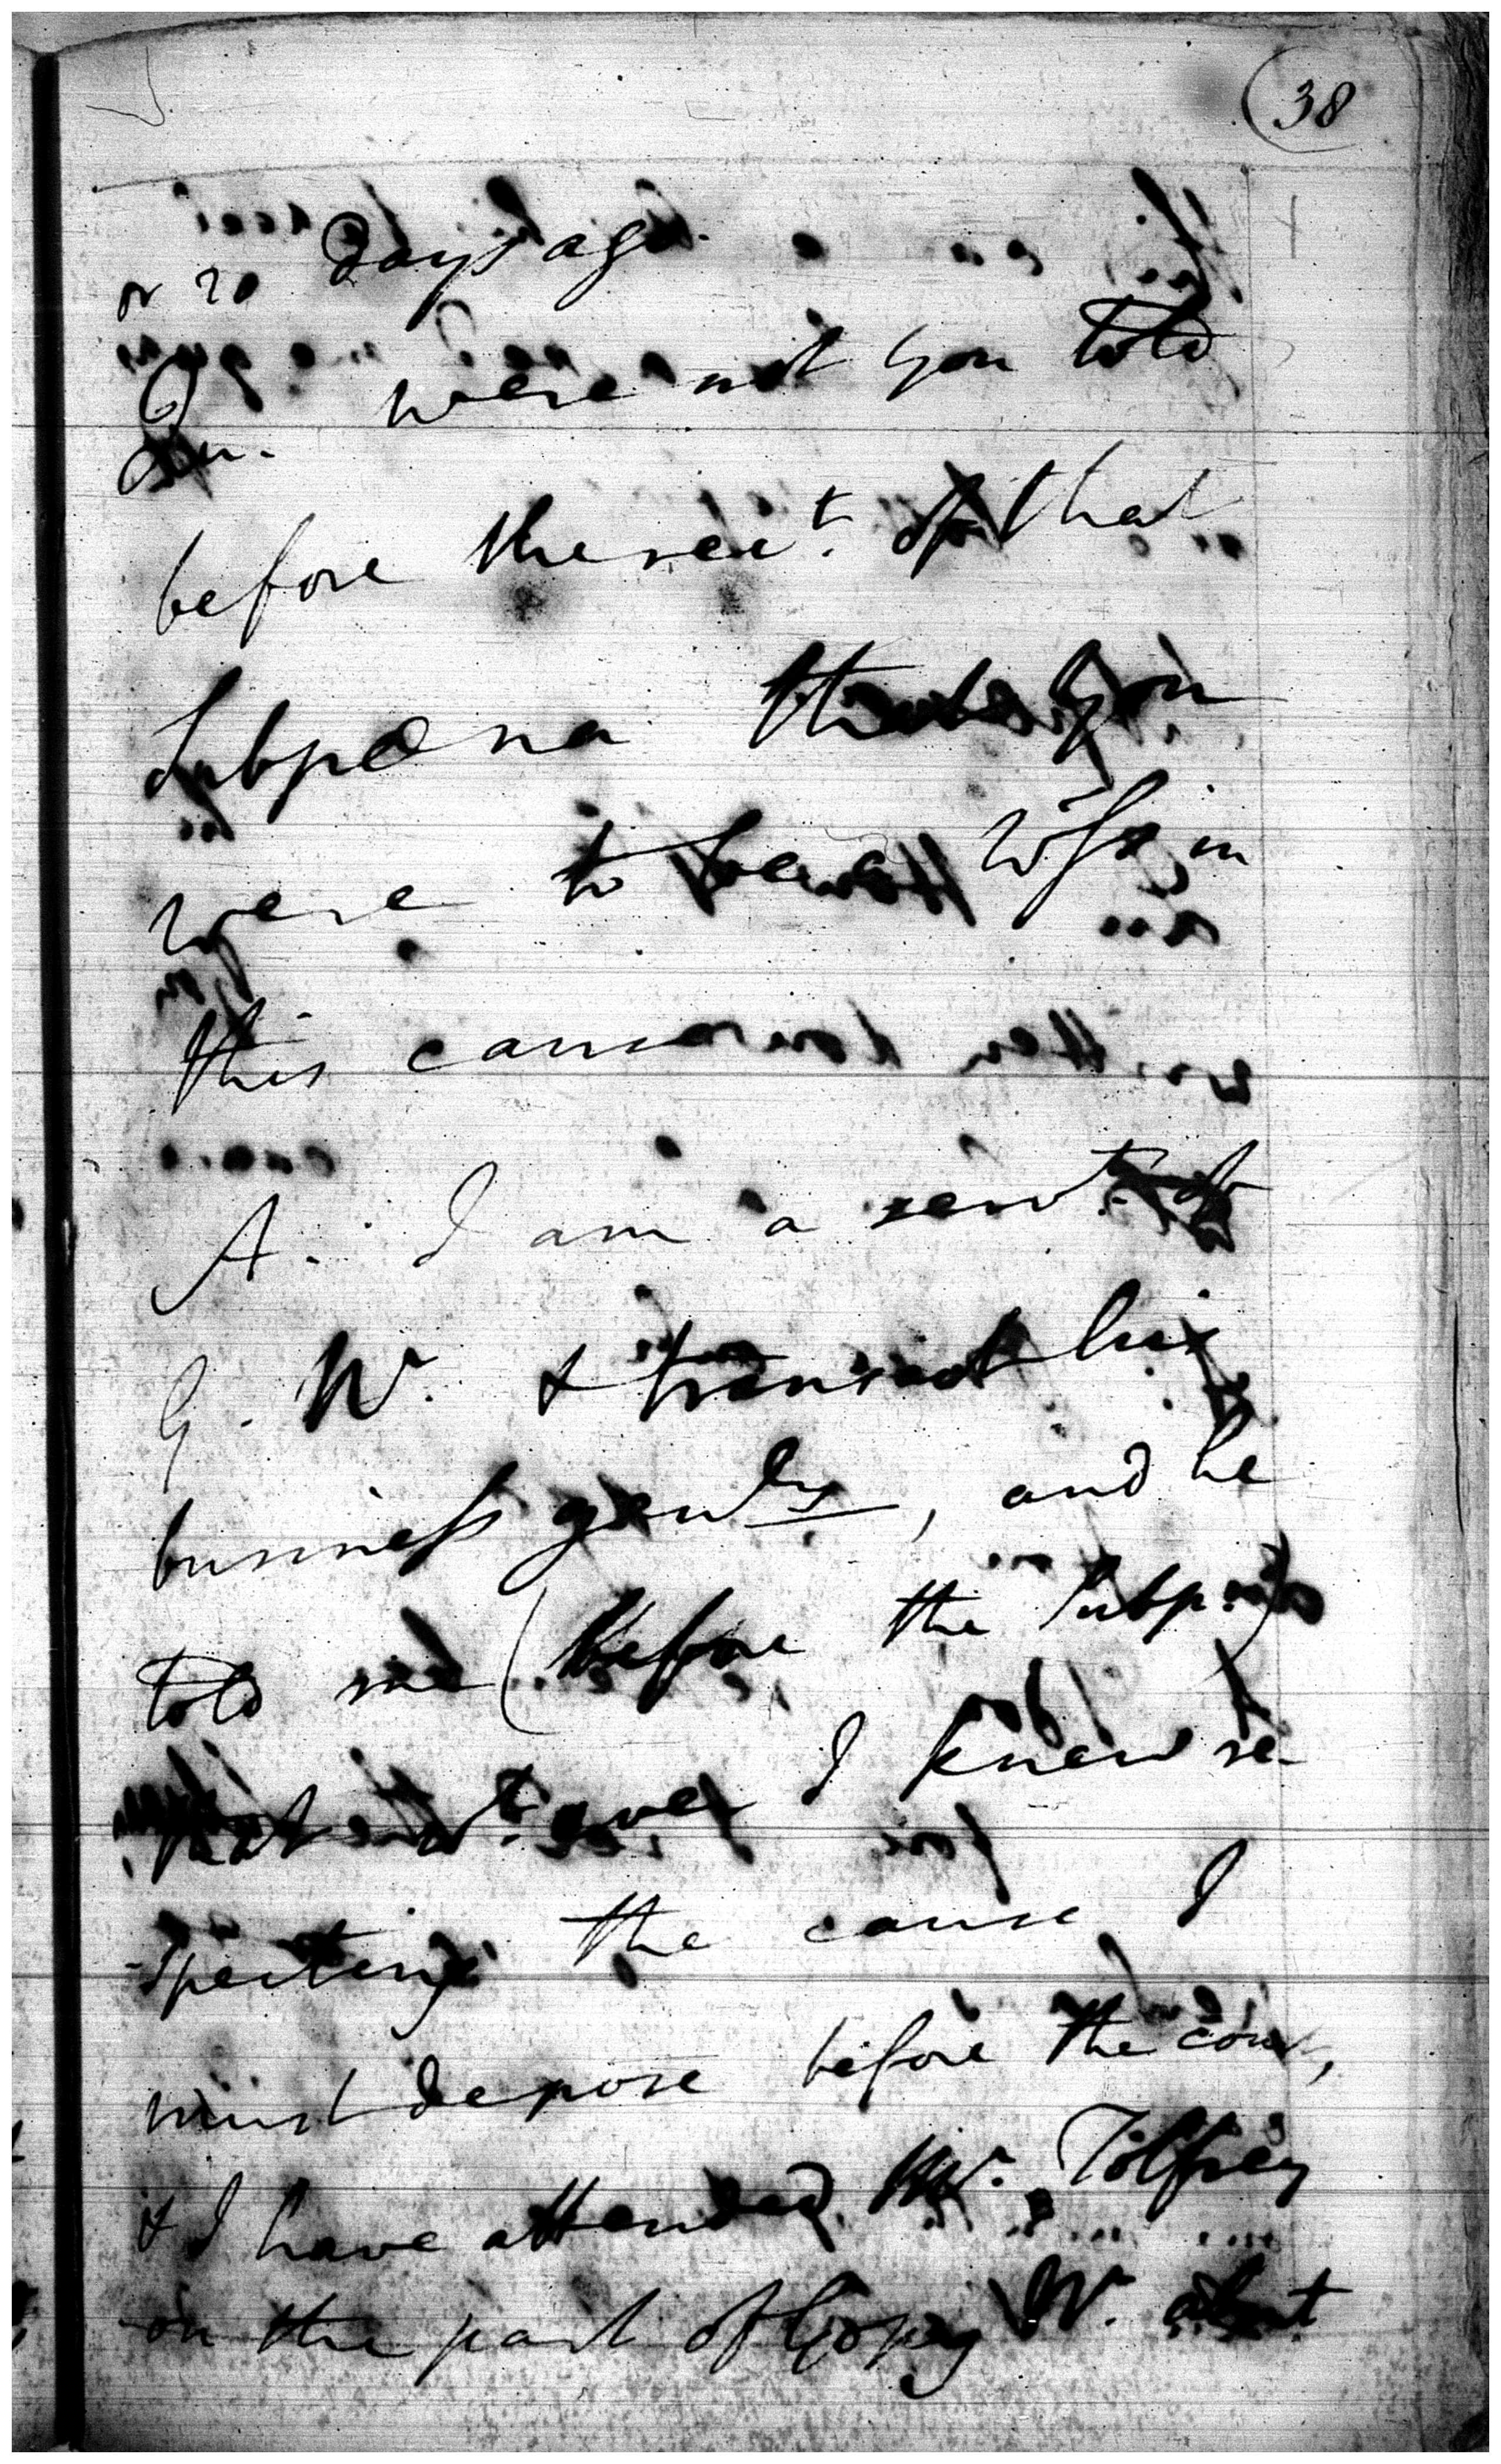 38
or 20 days ago.
Qu. were not you told
before the rect. of that
Subpœna that you
were to be a witss. in
this cause
A. I am a servt. of
G. N. & transact his
business genly, and he
told me (before the Subpœa)
that I knew re-
-specting the cause I
must depose before the court,
& I have attended Mr. Tolfrey
on the part of Gopey N. about